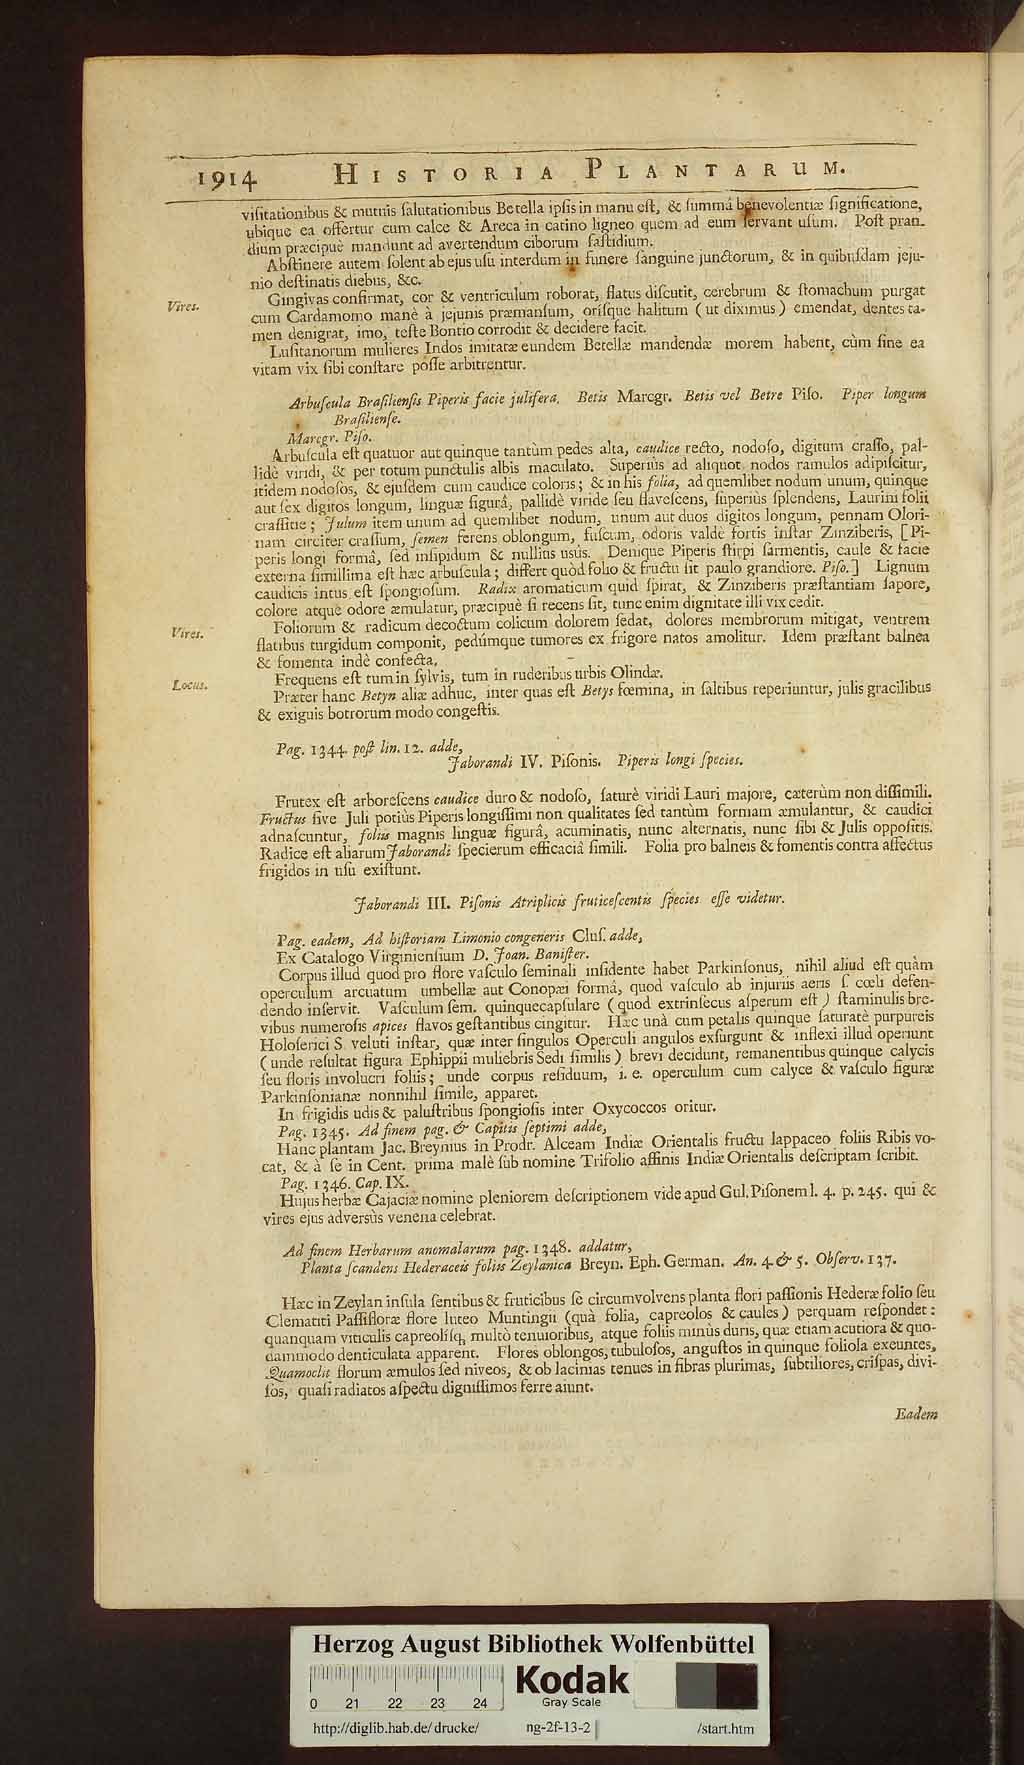 1914 HISTORIA PLANTARUM.
viſitationibus & mutuis ſalutationibus Betella ipſis in manu eſt, & ſummâ benevolentiæ ſignificatione,
ubique ea offertur cum calce & Areca in catino ligneo quem ad eum ſervant uſum. Poſt pran-
dium præcipuè mandunt ad avertendum ciborum faſtidium.
Abſtinere autem ſolent ab ejus uſu interdum in funere ſanguine junctorum, & in quibuſdam jeju-
nio deſtinatis diebus, &c.
Vires. Gingivas confirmat, cor & ventriculum roborat, flatus diſcutit, cerebrum & ſtomachum purgat
cum Cardamomo manè à jejunis præmanſum, oriſque halitum (ut diximus) emendat, dentes ta-
men denigrat, imo, teſte Bontio corrodit & decidere facit.
Luſitanorum mulieres Indos imitatæ eundem Betellæ mandendæ morem habent, cùm ſine ea
vitam vix ſibi conſtare poſſe arbitrentur.
Arbuſcula Braſilienſis Piperis facie julifera. Betis Marcgr. Betis vel Betre Piſo. Piper longum
Braſilienſe.
Marcgr. Piſo.
Arbuſcula eſt quatuor aut quinque tantùm pedes alta, caudice recto, nodoſo, digitum craſſo, pal-
lidè viridi, & per totum punctulis albis maculato. Superiùs ad aliquot nodos ramulos adipiſcitur,
itidem nodoſos, & ejuſdem cum caudice coloris; & in his folia, ad quemlibet nodum unum, quinque
aut ſex digitos longum, linguæ figurâ, pallidè viride ſeu flaveſcens, ſuperiùs ſplendens, Laurini folii
craſſitie; Julum item unum ad quemlibet nodum, unum aut duos digitos longum, pennam Olori-
nam circiter craſſum, ſemen ferens oblongum, fuſcum, odoris valdè fortis inſtar Zinziberis, [Pi-
peris longi formâ, ſed inſipidum & nullius usûs. Denique Piperis ſtirpi ſarmentis, caule & facie
externa ſimillima eſt hæc arbuſcula; differt quòd folio & fructu ſit paulo grandiore. Piſo.] Lignum
caudicis intus eſt ſpongioſum. Radix aromaticum quid ſpirat, & Zinziberis præſtantiam ſapore,
colore atque odore æmulatur, præcipuè ſi recens ſit, tunc enim dignitate illi vix cedit.
Vires. Foliorum & radicum decoctum colicum dolorem ſedat, dolores membrorum mitigat, ventrem
flatibus turgidum componit, pedúmque tumores ex frigore natos amolitur. Idem præſtant balnea
& fomenta indè confecta.
Locus. Frequens eſt tum in ſylvis, tum in ruderibus urbis Olindæ.
Præter hanc Betyn aliæ adhuc, inter quas eſt Betys fœmina, in ſaltibus reperiuntur, julis gracilibus
& exiguis botrorum modo congeſtis.
Pag. 1344. poſt lin. 12. adde,
Jaborandi IV. Piſonis. Piperis longi ſpecies.
Frutex eſt arboreſcens caudice duro & nodoſo, ſaturè viridi Lauri majore, cæterùm non diſſimili.
Fructus ſive Juli potiùs Piperis longiſſimi non qualitates ſed tantùm formam æmulantur, & caudici
adnaſcuntur, foliis magnis linguæ figurâ, acuminatis, nunc alternatis, nunc ſibi & Julis oppoſitis.
Radice eſt aliarum Jaborandi ſpecierum efficaciâ ſimili. Folia pro balneis & fomentis contra affectus
frigidos in uſu exiſtunt.
Jaborandi III. Piſonis Atriplicis fruticeſcentis ſpecies eſſe videtur.
Pag. eadem, Ad hiſtoriam Limonio congeneris Cluſ. adde,
Ex Catalogo Virginienſium D. Joan. Baniſter.
Corpus illud quod pro flore vaſculo ſeminali inſidente habet Parkinſonus, nihil aliud eſt quàm
operculum arcuatum umbellæ aut Conopæi formâ, quod vaſculo ab injuriis aeris ſ. cœli defen-
dendo inſervit. Vaſculum ſem. quinquecapſulare (quod extrinſecus aſperum eſt) ſtaminulis bre-
vibus numeroſis apices flavos geſtantibus cingitur. Hæc unà cum petalis quinque ſaturatè purpureis
Holoſerici S. veluti inſtar, quæ inter ſingulos Operculi angulos exſurgunt & inflexi illud operiunt
(unde reſultat figura Ephippii muliebris Sedi ſimilis) brevi decidunt, remanentibus quinque calycis
ſeu floris involucri foliis; unde corpus reſiduum, i. e. operculum cum calyce & vaſculo figuræ
Parkinſonianæ nonnihil ſimile, apparet.
In frigidis udis & paluſtribus ſpongioſis inter Oxycoccos oritur.
Pag. 1345. Ad finem pag. & Capitis ſeptimi adde,
Hanc plantam Jac. Breynius in Prodr. Alceam Indiæ Orientalis fructu lappaceo foliis Ribis vo-
cat, & à ſe in Cent. prima malè ſub nomine Trifolio affinis Indiæ Orientalis deſcriptam ſcribit.
Pag. 1346. Cap. IX.
Hujus herbæ Cajaciæ nomine pleniorem deſcriptionem vide apud Gul. Piſonem l. 4. p. 245. qui &
vires ejus adversùs venena celebrat.
Ad finem Herbarum anomalarum pag. 1348. addatur,
Planta ſcandens Hederaceis foliis Zeylanica Breyn. Eph. German. An. 4. & 5. Obſerv. 137.
Hæc in Zeylan inſula ſentibus & fruticibus ſe circumvolvens planta flori paſſionis Hederæ folio ſeu
Clematiti Paſſifloræ flore luteo Muntingii (quà folia, capreolos & caules) perquam reſpondet:
quanquam viticulis capreoliſq; multò tenuioribus, atque foliis minùs duris, quæ etiam acutiora & quo-
dammodo denticulata apparent. Flores oblongos, tubuloſos, anguſtos in quinque folioſa exeuntes,
Quamoclit florum æmulos ſed niveos, & ob lacinias tenues in fibras plurimas, ſubtiliores, criſpas, divi-
ſos, quaſi radiatos aſpectu digniſſimos ferre aiunt.
Eadem
Herzog August Bibliothek Wolfenbüttel
0 21 22 23 24 Kodak
Gray Scale
http://diglib.hab.de/drucke/ ng-2f-13-2 /start.htm